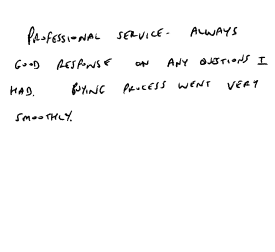 PROFESSIONAL SERVICE. ALWAYS
GOOD RESPONSE ON ANY QUSTIONS I
HAD. BUYING PROCESS WENT VERY
SMOOTHLY.